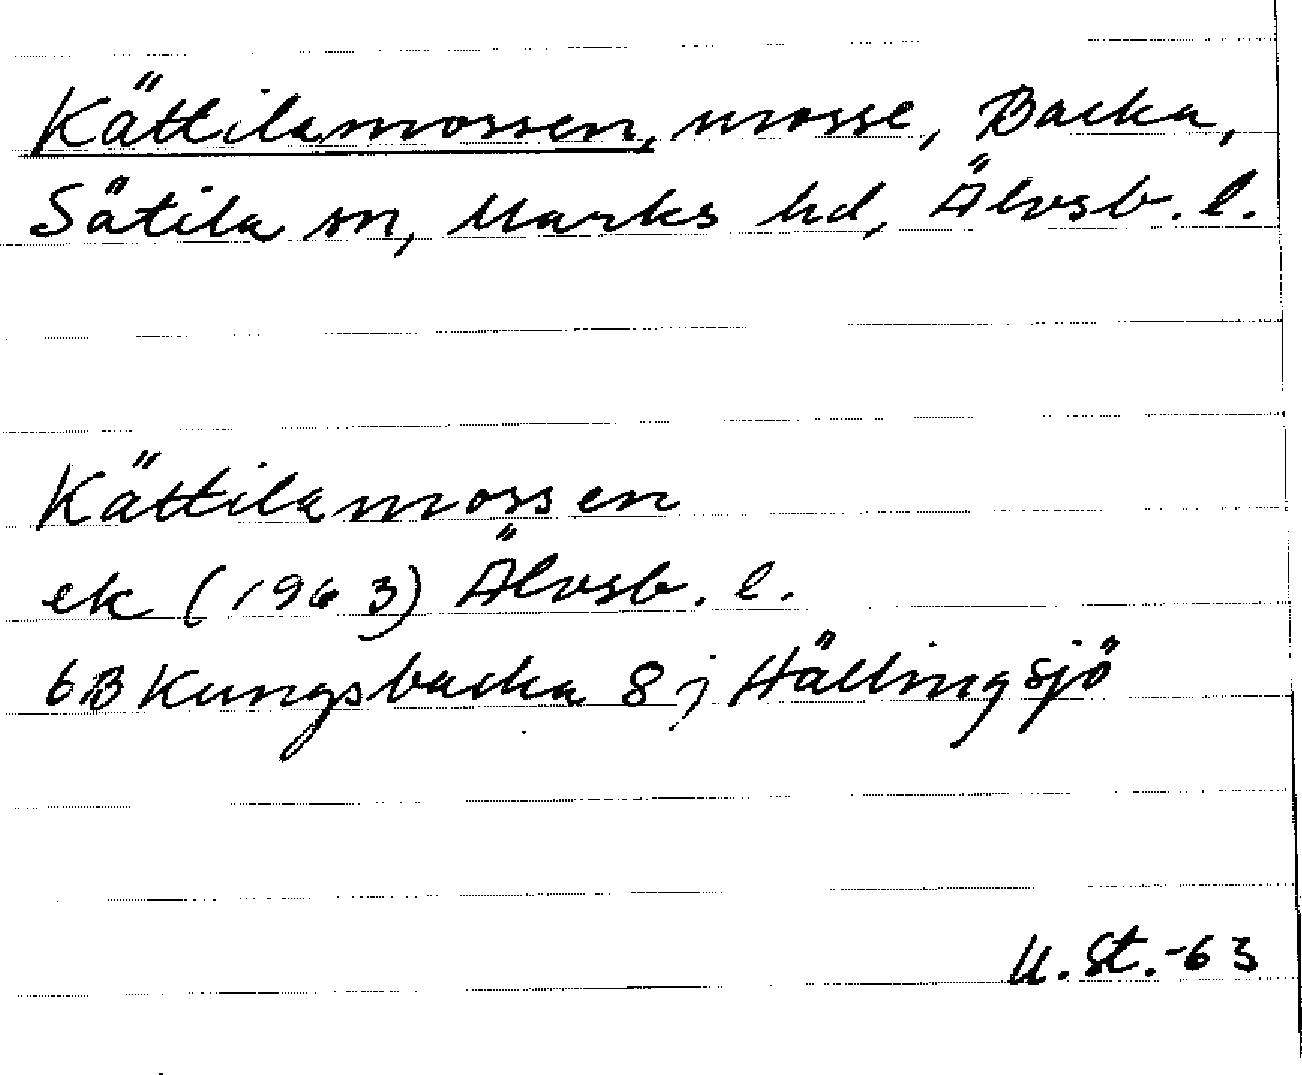 Kättilamossen, mosse, Backa,
Sätila sn, Marks hd, Älvsb. l.
Kättilamossen
ek (1963) Älvsb. l.
6B Kungsbacka 8 j Hällingsjö
U. St. -63